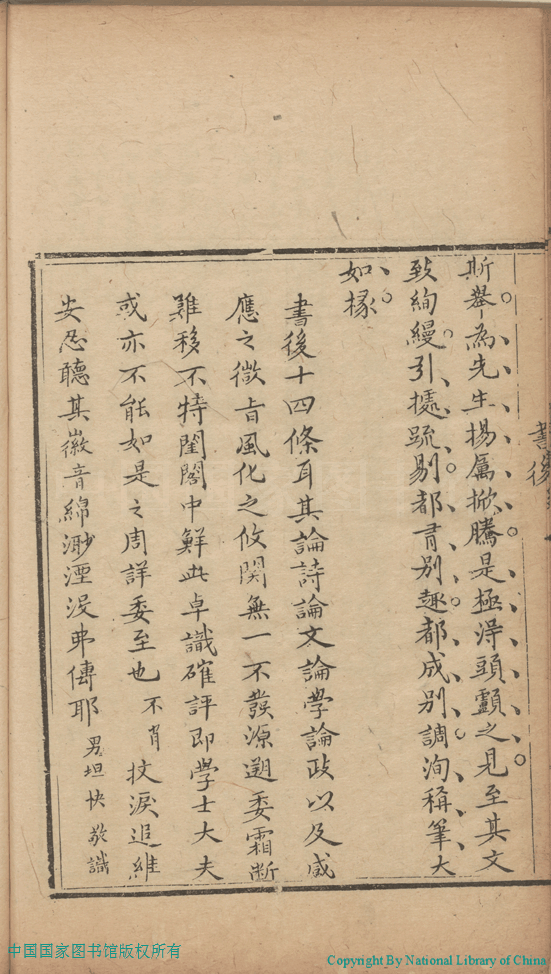 書後
斯舉為先生揚厲掀騰是極淂頭顱之見至其文
致絢縵引據疏剔都有別趣都成別調洵稱筆大
如椽
書後十四條耳其論詩論文論學論政以及感
應之徵旨風化之攸関無一不發源遡委霜断
難移不特閨閣中鮮此卓識確評即學士大夫
或亦不能如是之周詳委至也不肖抆淚追維
安忍聽其徽音綿渺湮沒弗傳耶男坦快敬識
中国国家图书馆版权所有
Copyright By National Library of China